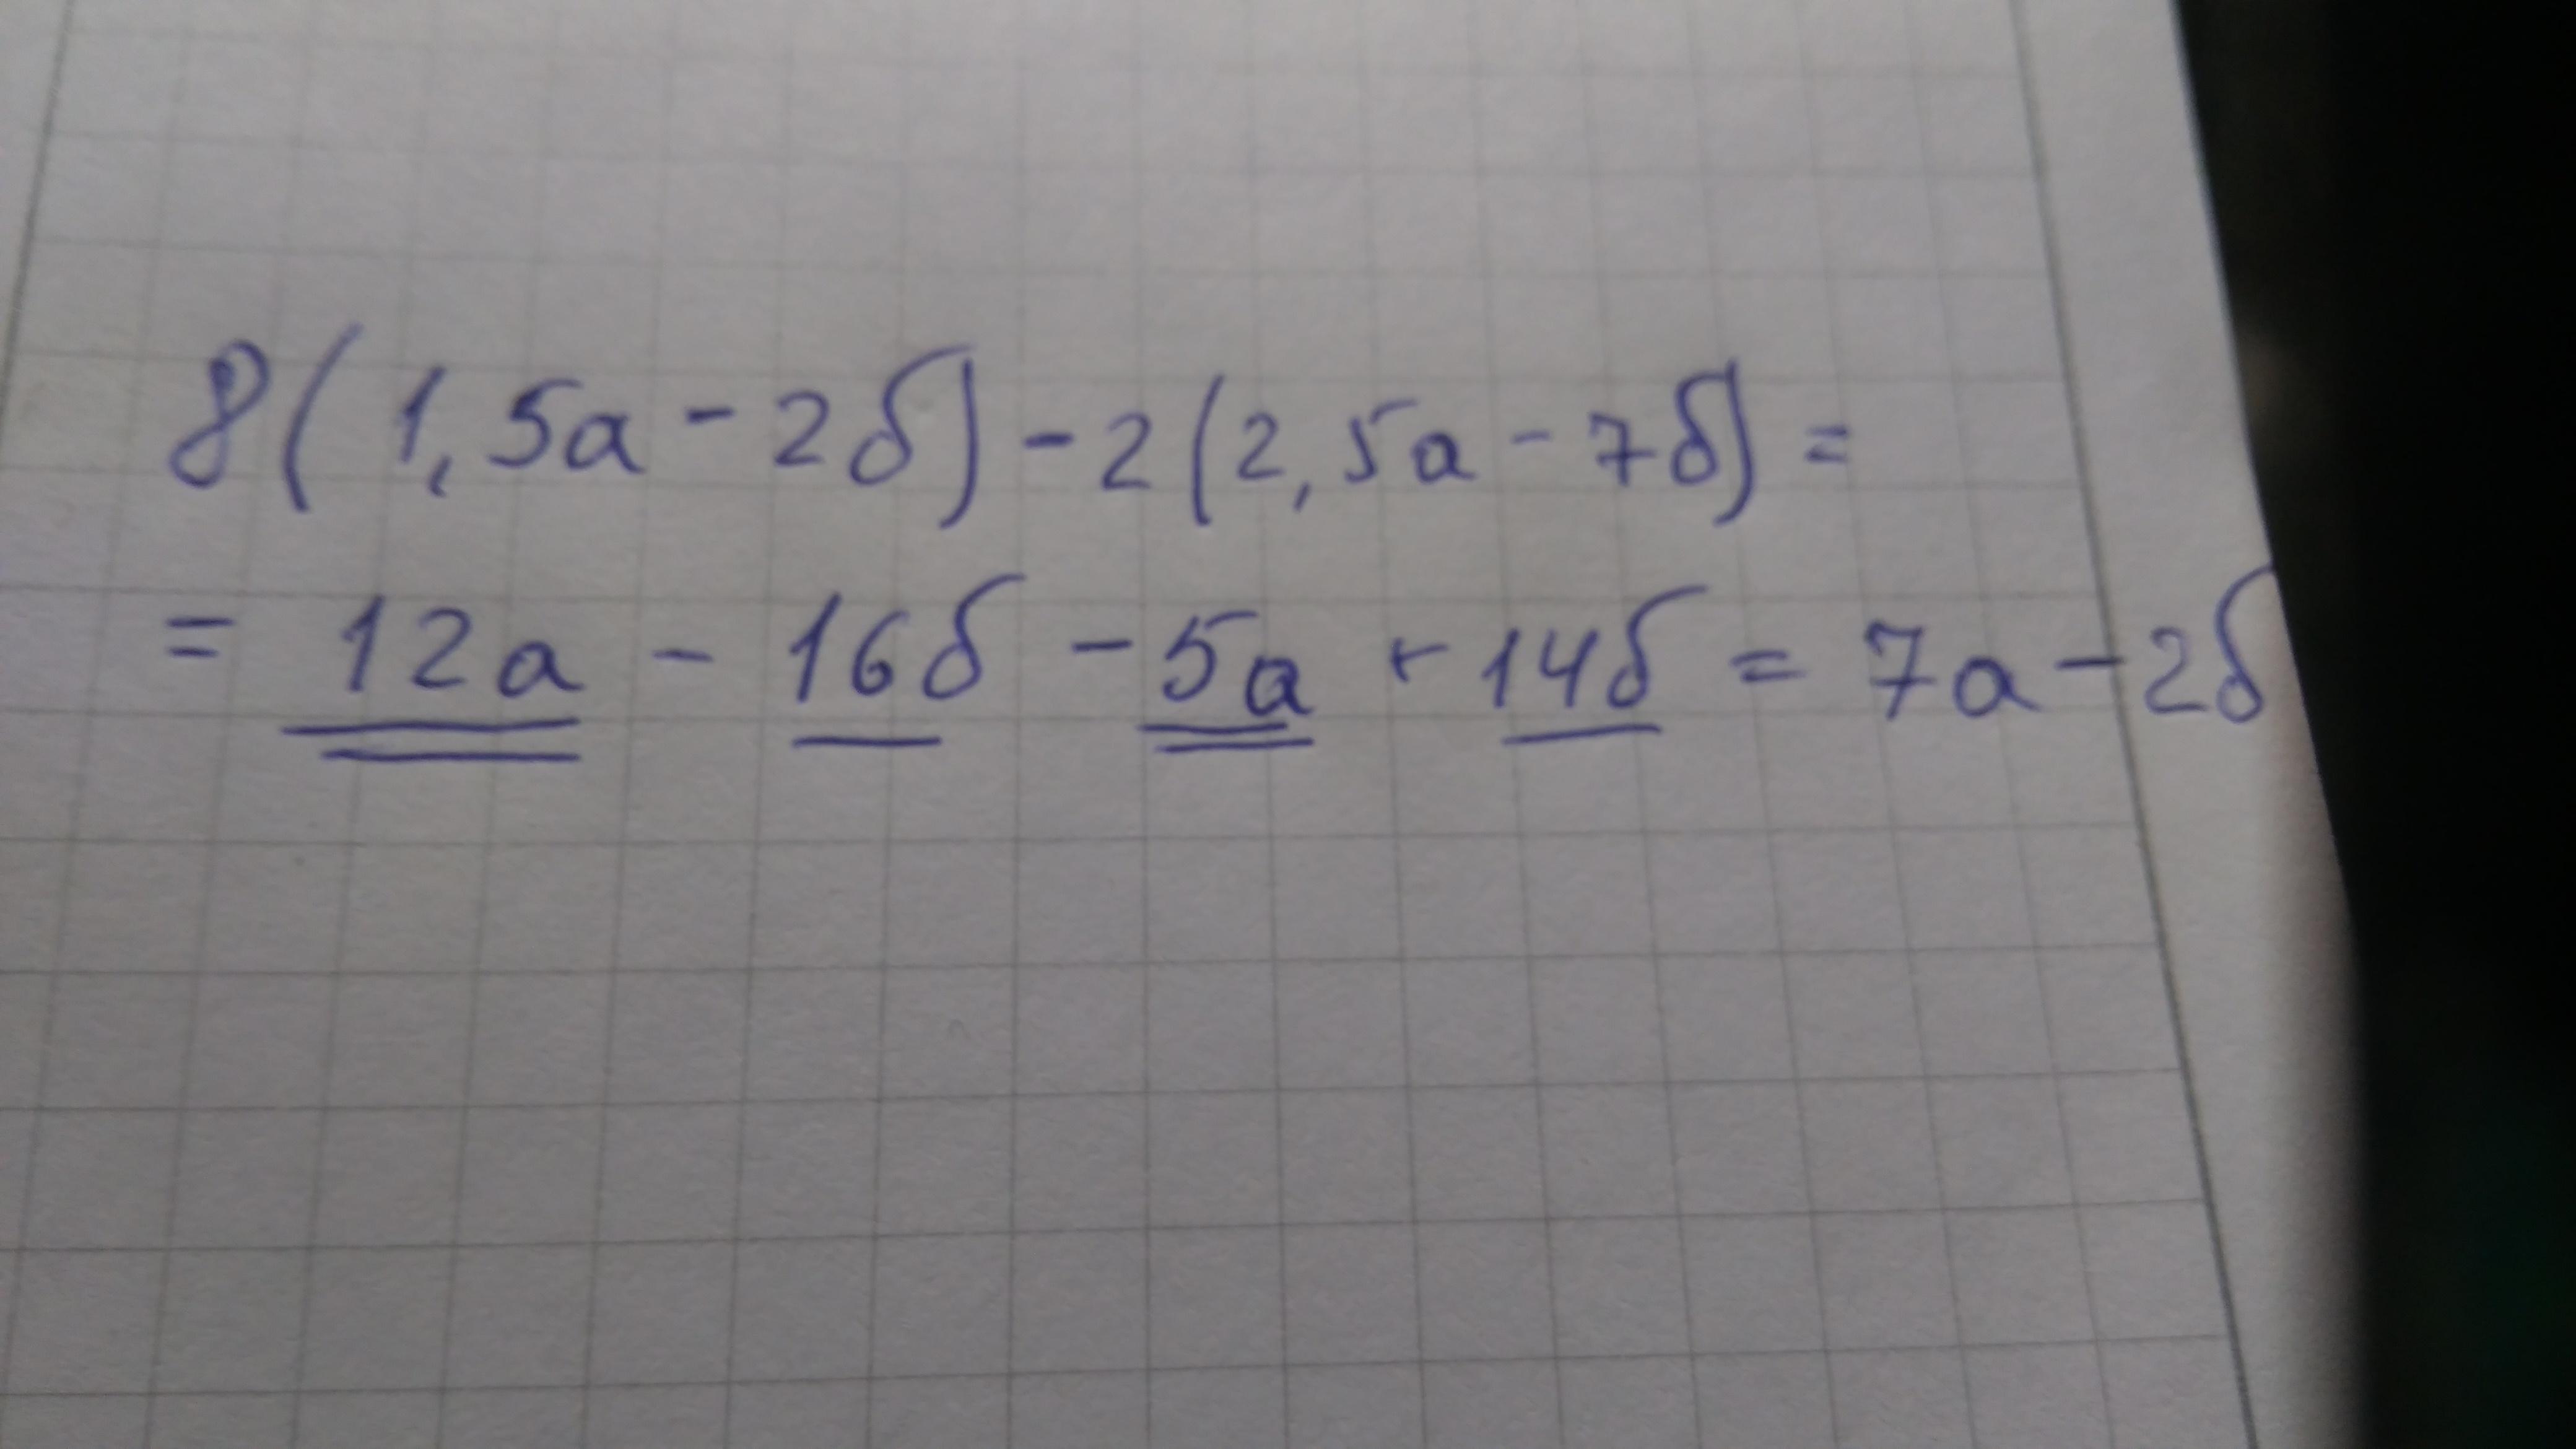 8(1,5а - 2б) - 2(2,5а - 7б) =
= 12а - 16б - 5а + 14б = 7а - 2б